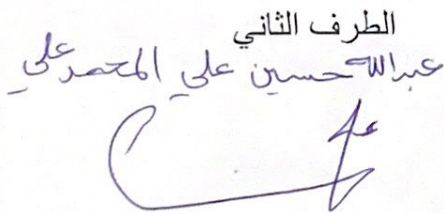 الطرف الثاني
عبدالله حسين علي المحمد علي